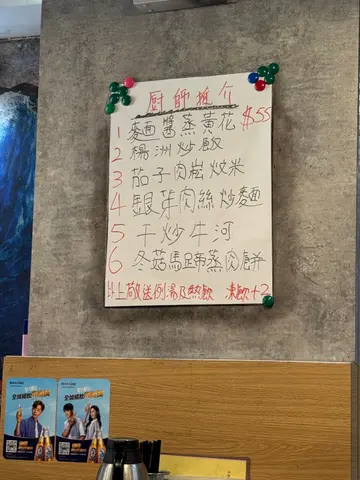 廚師推介
1 麵醬蒸黃花 $55
2 楊洲炒飯
3 茄子肉崧炆米
4 銀芽肉絲炒麵
5 干炒牛河
6 冬菇馬蹄蒸肉餅
以上敬送例湯及熱飲 凍飲+2